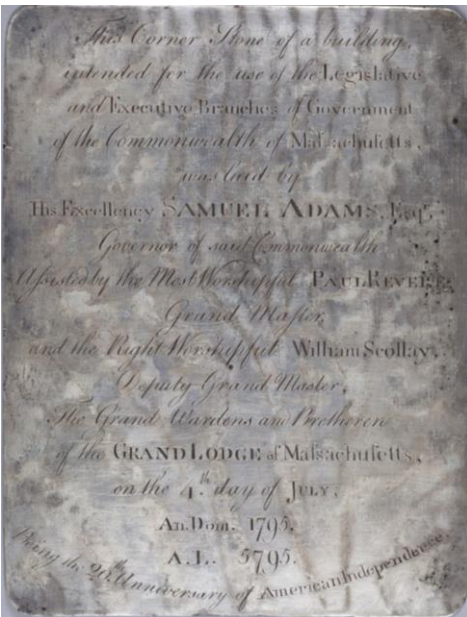 This Corner Stone of a building,
intended for the use of the Legislative
and Executive Branches of Government
of the Commonwealth of Maſsachuſetts,
was laid by
His Excellency SAMUEL ADAMS, Esqr.
Governor of said Commonwealth
Aſsisted by the Most Worshipful PAUL REVERE
Grand Maſter,
and the Right Worshipful William Scollay,
Deputy Grand Master,
The Grand Wardens and Bretheren
of the GRAND LODGE of Maſsachuſetts,
on the 4th. day of JULY,
An. Dom. 1795.
A.L. 5795.
Being the 20th. Anniversary of American Independence.